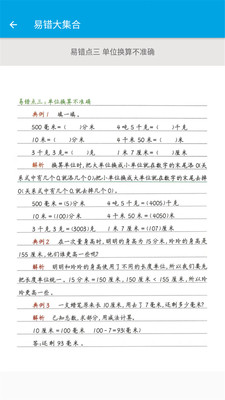 易错大集合
易错点三 单位换算不准确
易错点三：单位换算不准确
典例1 填一填。
500毫米=( )分米 4吨5千克=( )千克
10米=( )分米 4千米50米=( )米
3千克3克=( )克 1米7厘米=( )厘米
解析 换算单位时，把大单位换成小单位就在数字的末尾添0(关
系式中有几个0，就添几个0)；把小单位换成大单位就在数字的末尾去掉
0(关系式中有几个0，就去掉几个0)。
500毫米=(5)分米 4吨5千克=(4005)千克
10米=(100)分米 4千米50米=(4050)米
3千克3克=(3003)克 1米7厘米=(107)厘米
典例2 在一次量身高时，明明的身高为15分米，玲玲的身高是
155厘米，他们谁更高一些呢？
解析 明明和玲玲的身高使用了不同的长度单位，所以我们要先
把长度单位统一。15分米=150厘米，150厘米<155厘米，所以玲
玲更高一些。
典例3 一支蜡笔原来长10厘米，用去了7毫米，还剩多少毫米？
解析 已知总数，求部分，用减法计算。
10厘米=100毫米 100-7=93(毫米)
答：还剩93毫米。